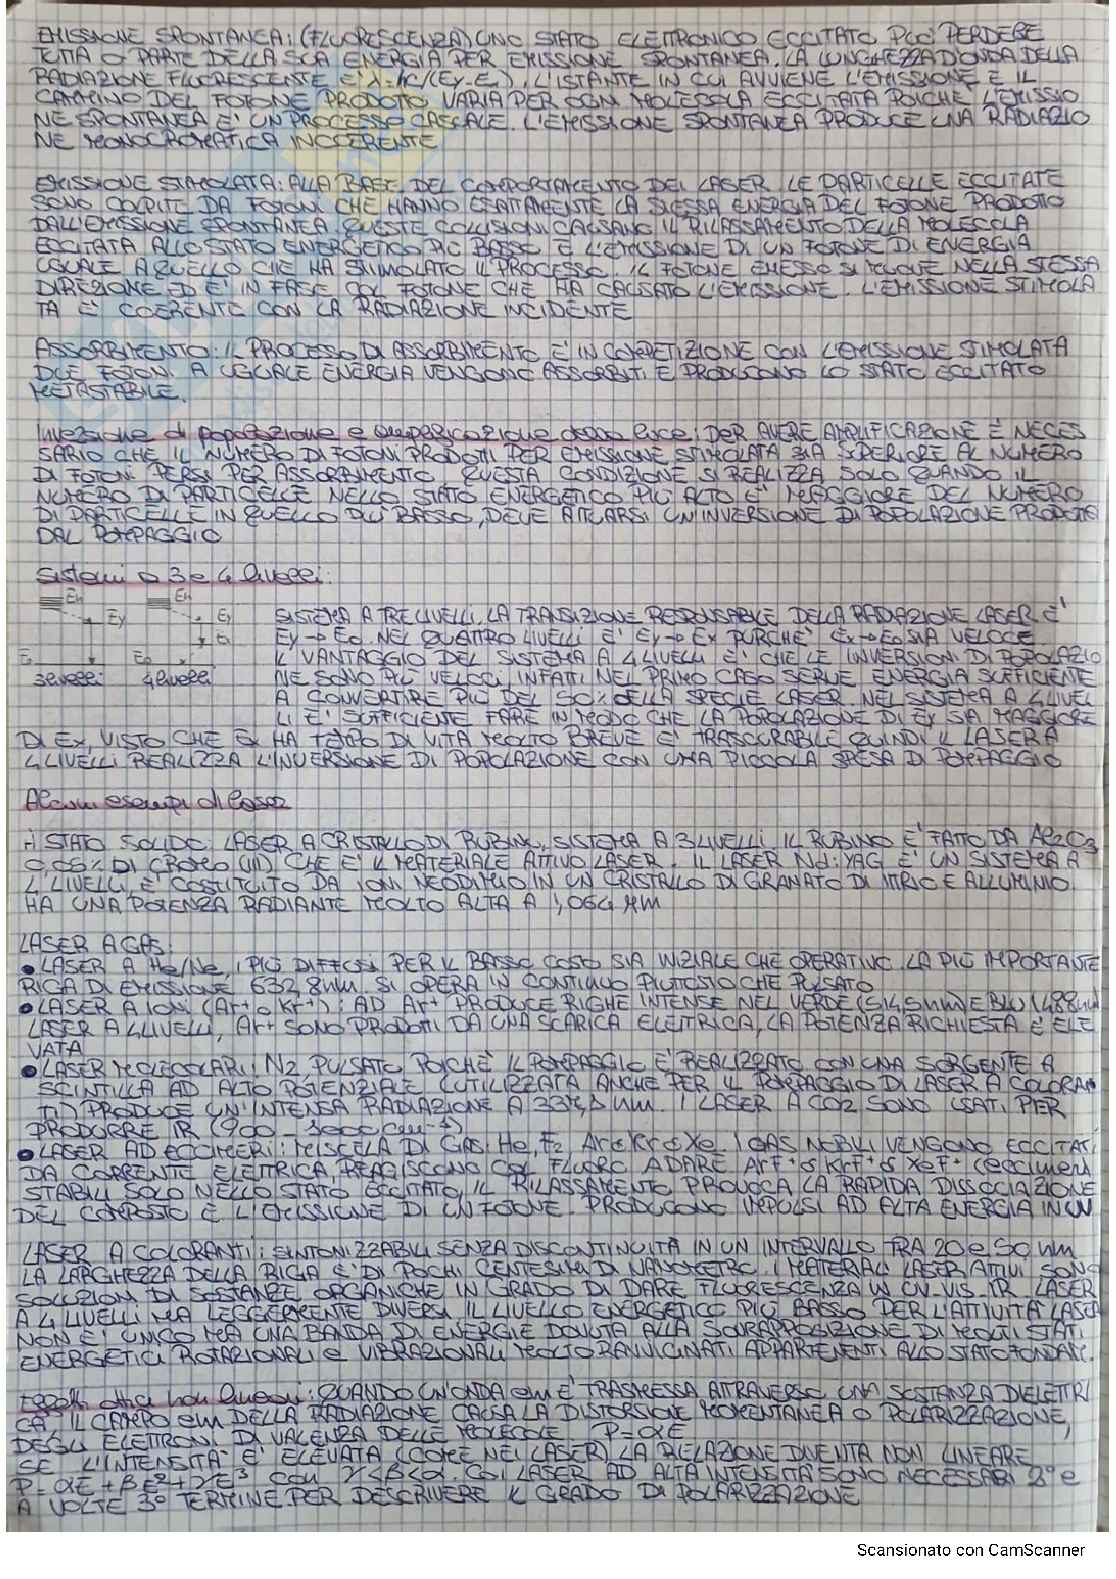 EMISSIONE SPONTANEA: (FLUORESCENZA) UNO STATO ELETTRONICO ECCITATO PUò PERDERE
TUTTA O PARTE DELLA SUA ENERGIA PER EMISSIONE SPONTANEA. LA LUNGHEZZA D'ONDA DELLA
RADIAZIONE FLUORESCENTE E' λ=hc/(Ey-Ex). L'ISTANTE IN CUI AVVIENE L'EMISSIONE E IL
CAMMINO DEL FOTONE PRODOTTO VARIA PER OGNI MOLECOLA ECCITATA POICHE L'EMISSIO
NE SPONTANEA E' UN PROCESSO CASUALE. L'EMISSIONE SPONTANEA PRODUCE UNA RADIAZIO
NE MONOCROMATICA INCOERENTE
EMISSIONE STIMOLATA: ALLA BASE DEL COMPORTAMENTO DEI LASER. LE PARTICELLE ECCITATE
SONO COLPITE DA FOTONI CHE HANNO ESATTAMENTE LA STESSA ENERGIA DEL FOTONE PRODOTTO
DALL'EMISSIONE SPONTANEA. QUESTE COLLISIONI CAUSANO IL RILASSAMENTO DELLA MOLECOLA
ECCITATA ALLO STATO ENERGETICO PIù BASSO E L'EMISSIONE DI UN FOTONE DI ENERGIA
UGUALE A QUELLO CHE HA STIMOLATO IL PROCESSO. IL FOTONE EMESSO SI MUOVE NELLA STESSA
DIREZIONE ED E' IN FASE COL FOTONE CHE HA CAUSATO L'EMISSIONE. L'EMISSIONE STIMOLA
TA E' COERENTE CON LA RADIAZIONE INCIDENTE
ASSORBIMENTO: IL PROCESSO DI ASSORBIMENTO E' IN COMPETIZIONE CON L'EMISSIONE STIMOLATA
DUE FOTONI A UGUALE ENERGIA VENGONO ASSORBITI E PRODUCONO LO STATO ECCITATO
METASTABILE.
Inversione di popolazione e amplificazione della luce: PER AVERE AMPLIFICAZIONE È NECES
SARIO CHE IL NUMERO DI FOTONI PRODOTTI PER EMISSIONE STIMOLATA SIA SUPERIORE AL NUMERO
DI FOTONI PERSI PER ASSORBIMENTO. QUESTA CONDIZIONE SI REALIZZA SOLO QUANDO IL
NUMERO DI PARTICELLE NELLO STATO ENERGETICO PIù ALTO E' MAGGIORE DEL NUMERO
DI PARTICELLE IN QUELLO PIù BASSO, DEVE ATTUARSI UN'INVERSIONE DI POPOLAZIONE PRODOTTA
DAL POMPAGGIO
Sistemi a 3 e 4 livelli:
En En
Ey Ey
Ex
E0 E0
3 livelli 4 livelli
SISTEMA A TRE LIVELLI. LA TRANSIZIONE RESPONSABILE DELLA RADIAZIONE LASER E'
Ey→E0. NEL QUATTRO LIVELLI E' Ey→Ex PURCHE' Ex→E0 SIA VELOCE
IL VANTAGGIO DEL SISTEMA A 4 LIVELLI E' CHE LE INVERSIONI DI POPOLAZIO
NE SONO PIù VELOCI, INFATTI NEL PRIMO CASO SERVE ENERGIA SUFFICIENTE
A CONVERTIRE PIù DEL 50% DELLA SPECIE LASER. NEL SISTEMA A 4 LIVEL
LI E' SUFFICIENTE FARE IN MODO CHE LA POPOLAZIONE DI Ey SIA MAGGIORE
DI Ex, VISTO CHE Ex HA TEMPO DI VITA MOLTO BREVE E' TRASCURABILE QUINDI IL LASER A
4 LIVELLI REALIZZA L'INVERSIONE DI POPOLAZIONE CON UNA PICCOLA SPESA DI POMPAGGIO
Alcuni esempi di laser
A STATO SOLIDO: LASER A CRISTALLO DI RUBINO, SISTEMA A 3 LIVELLI. IL RUBINO E' FATTO DA Al2O3
0,05% DI CROMO (III) CHE E' IL MATERIALE ATTIVO LASER. IL LASER Nd:YAG E' UN SISTEMA A
4 LIVELLI, E' COSTITUITO DA IONI NEODIMIO IN UN CRISTALLO DI GRANATO DI ITTRIO E ALLUMINIO.
HA UNA POTENZA RADIANTE MOLTO ALTA A 1,064 μm
LASER A GAS:
• LASER A He/Ne, I PIù DIFFUSI PER IL BASSO COSTO SIA INIZIALE CHE OPERATIVO. LA PIù IMPORTANTE
RIGA DI EMISSIONE 632,8nm. SI OPERA IN CONTINUO PIUTTOSTO CHE PULSATO
• LASER A IONI (Ar+ o Kr+): AD Ar+ PRODUCE RIGHE INTENSE NEL VERDE (514,5nm) E BLU (488nm)
LASER A 4 LIVELLI, Ar+ SONO PRODOTTI DA UNA SCARICA ELETTRICA, LA POTENZA RICHIESTA E' ELE
VATA
• LASER MOLECOLARI: N2 PULSATO POICHE' IL POMPAGGIO E' REALIZZATO CON UNA SORGENTE A
SCINTILLA AD ALTO POTENZIALE (UTILIZZATA ANCHE PER IL POMPAGGIO DI LASER A COLORAN
TI) PRODUCE UN'INTENSA RADIAZIONE A 337,1 nm. I LASER A CO2 SONO USATI PER
PRODURRE IR (900 - 1000 cm-1)
• LASER AD ECCIMERI: MISCELA DI GAS: He, F2, Ar o Kr o Xe. I GAS NOBILI VENGONO ECCITATI
DA CORRENTE ELETTRICA, REAGISCONO COL FLUORO A DARE ArF+ o KrF+ o XeF+ (eccimeri
STABILI SOLO NELLO STATO ECCITATO, IL RILASSAMENTO PROVOCA LA RAPIDA DISSOCIAZIONE
DEL COMPOSTO E L'EMISSIONE DI UN FOTONE. PRODUCONO IMPULSI AD ALTA ENERGIA IN UV
LASER A COLORANTI: SINTONIZZABILI SENZA DISCONTINUITÀ IN UN INTERVALLO TRA 20 e 50 nm
LA LARGHEZZA DELLA RIGA E' DI POCHI CENTESIMI DI NANOMETRO. I MATERIALI LASER ATTIVI SONO
SOLUZIONI DI SOSTANZE ORGANICHE IN GRADO DI DARE FLUORESCENZA IN UV-VIS-IR. LASER
A 4 LIVELLI MA LEGGERMENTE DIVERSI. IL LIVELLO ENERGETICO PIù BASSO PER L'ATTIVITÀ LASER
NON E' UNICO MA UNA BANDA DI ENERGIE DOVUTA ALLA SOVRAPPOSIZIONE DI MOLTI STATI
ENERGETICI ROTAZIONALI e VIBRAZIONALI MOLTO RAVVICINATI APPARTENENTI ALLO STATO FONDAM.
Effetti ottici non lineari: QUANDO UN'ONDA em E' TRASMESSA ATTRAVERSO UNA SOSTANZA DIELETTRI
CA, IL CAMPO em DELLA RADIAZIONE CAUSA LA DISTORSIONE MOMENTANEA O POLARIZZAZIONE,
DEGLI ELETTRONI DI VALENZA DELLE MOLECOLE P=αE
SE L'INTENSITÀ E' ELEVATA (COME NEI LASER) LA RELAZIONE DIVENTA NON LINEARE
P=αE+βE²+γE³ con γ<β<α. Coi LASER AD ALTA INTENSITÀ SONO NECESSARI 2° e
A VOLTE 3° TERMINE PER DESCRIVERE IL GRADO DI POLARIZZAZIONE
Scansionato con CamScanner